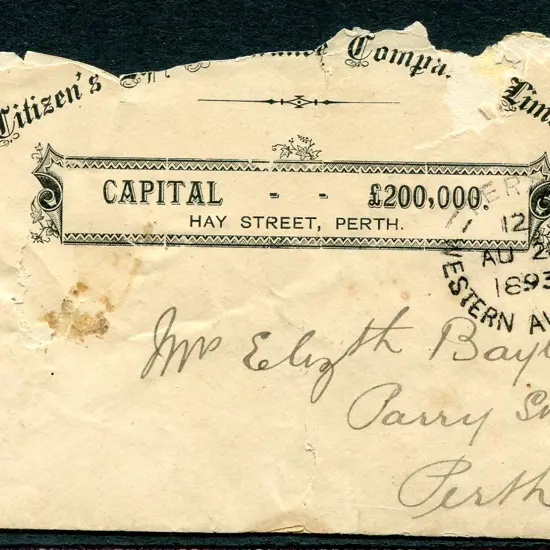 Citizen's Compa.
CAPITAL - - £200,000.
HAY STREET, PERTH.
12
AU 2
1893
WESTERN AU
Mrs Elizth Bayl
Parry S
Perth